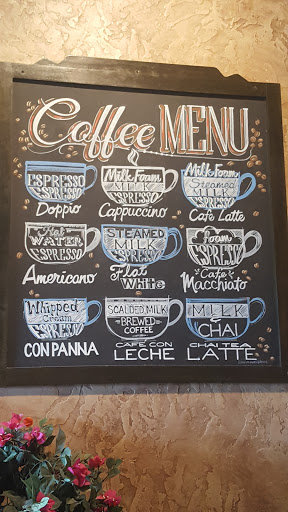 Coffee MENU
ESPRESSO
ESPRESSO
Doppio
Milk Foam
MILK
ESPRESSO
Cappuccino
Milk Foam
Steamed
MILK
ESPRESSO
Café Latte
Hot
WATER
ESPRESSO
Americano
STEAMED
MILK
ESPRESSO
Flat
White
Foam
ESPRESSO
Cafe
Macchiato
Whipped
Cream
ESPRESSO
CON PANNA
SCALDED MILK
BREWED
COFFEE
CAFE CON
LECHE
MILK
CHAI
CHAI TEA
LATTE